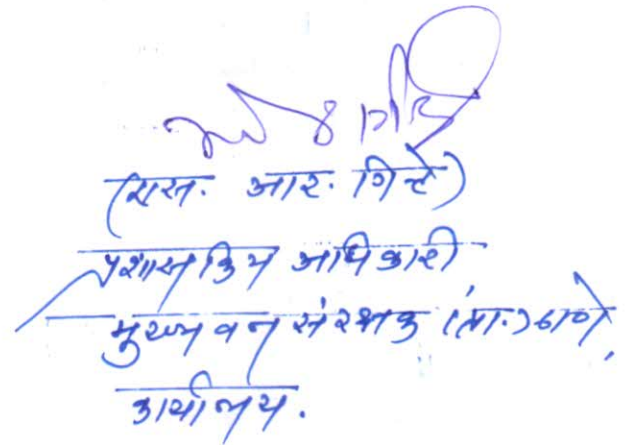 (एस. आर. गित्ते)
प्रशासकिय अधिकारी
मुख्य वन संरक्षक (प्रा.) ठाणे,
कार्यालय.